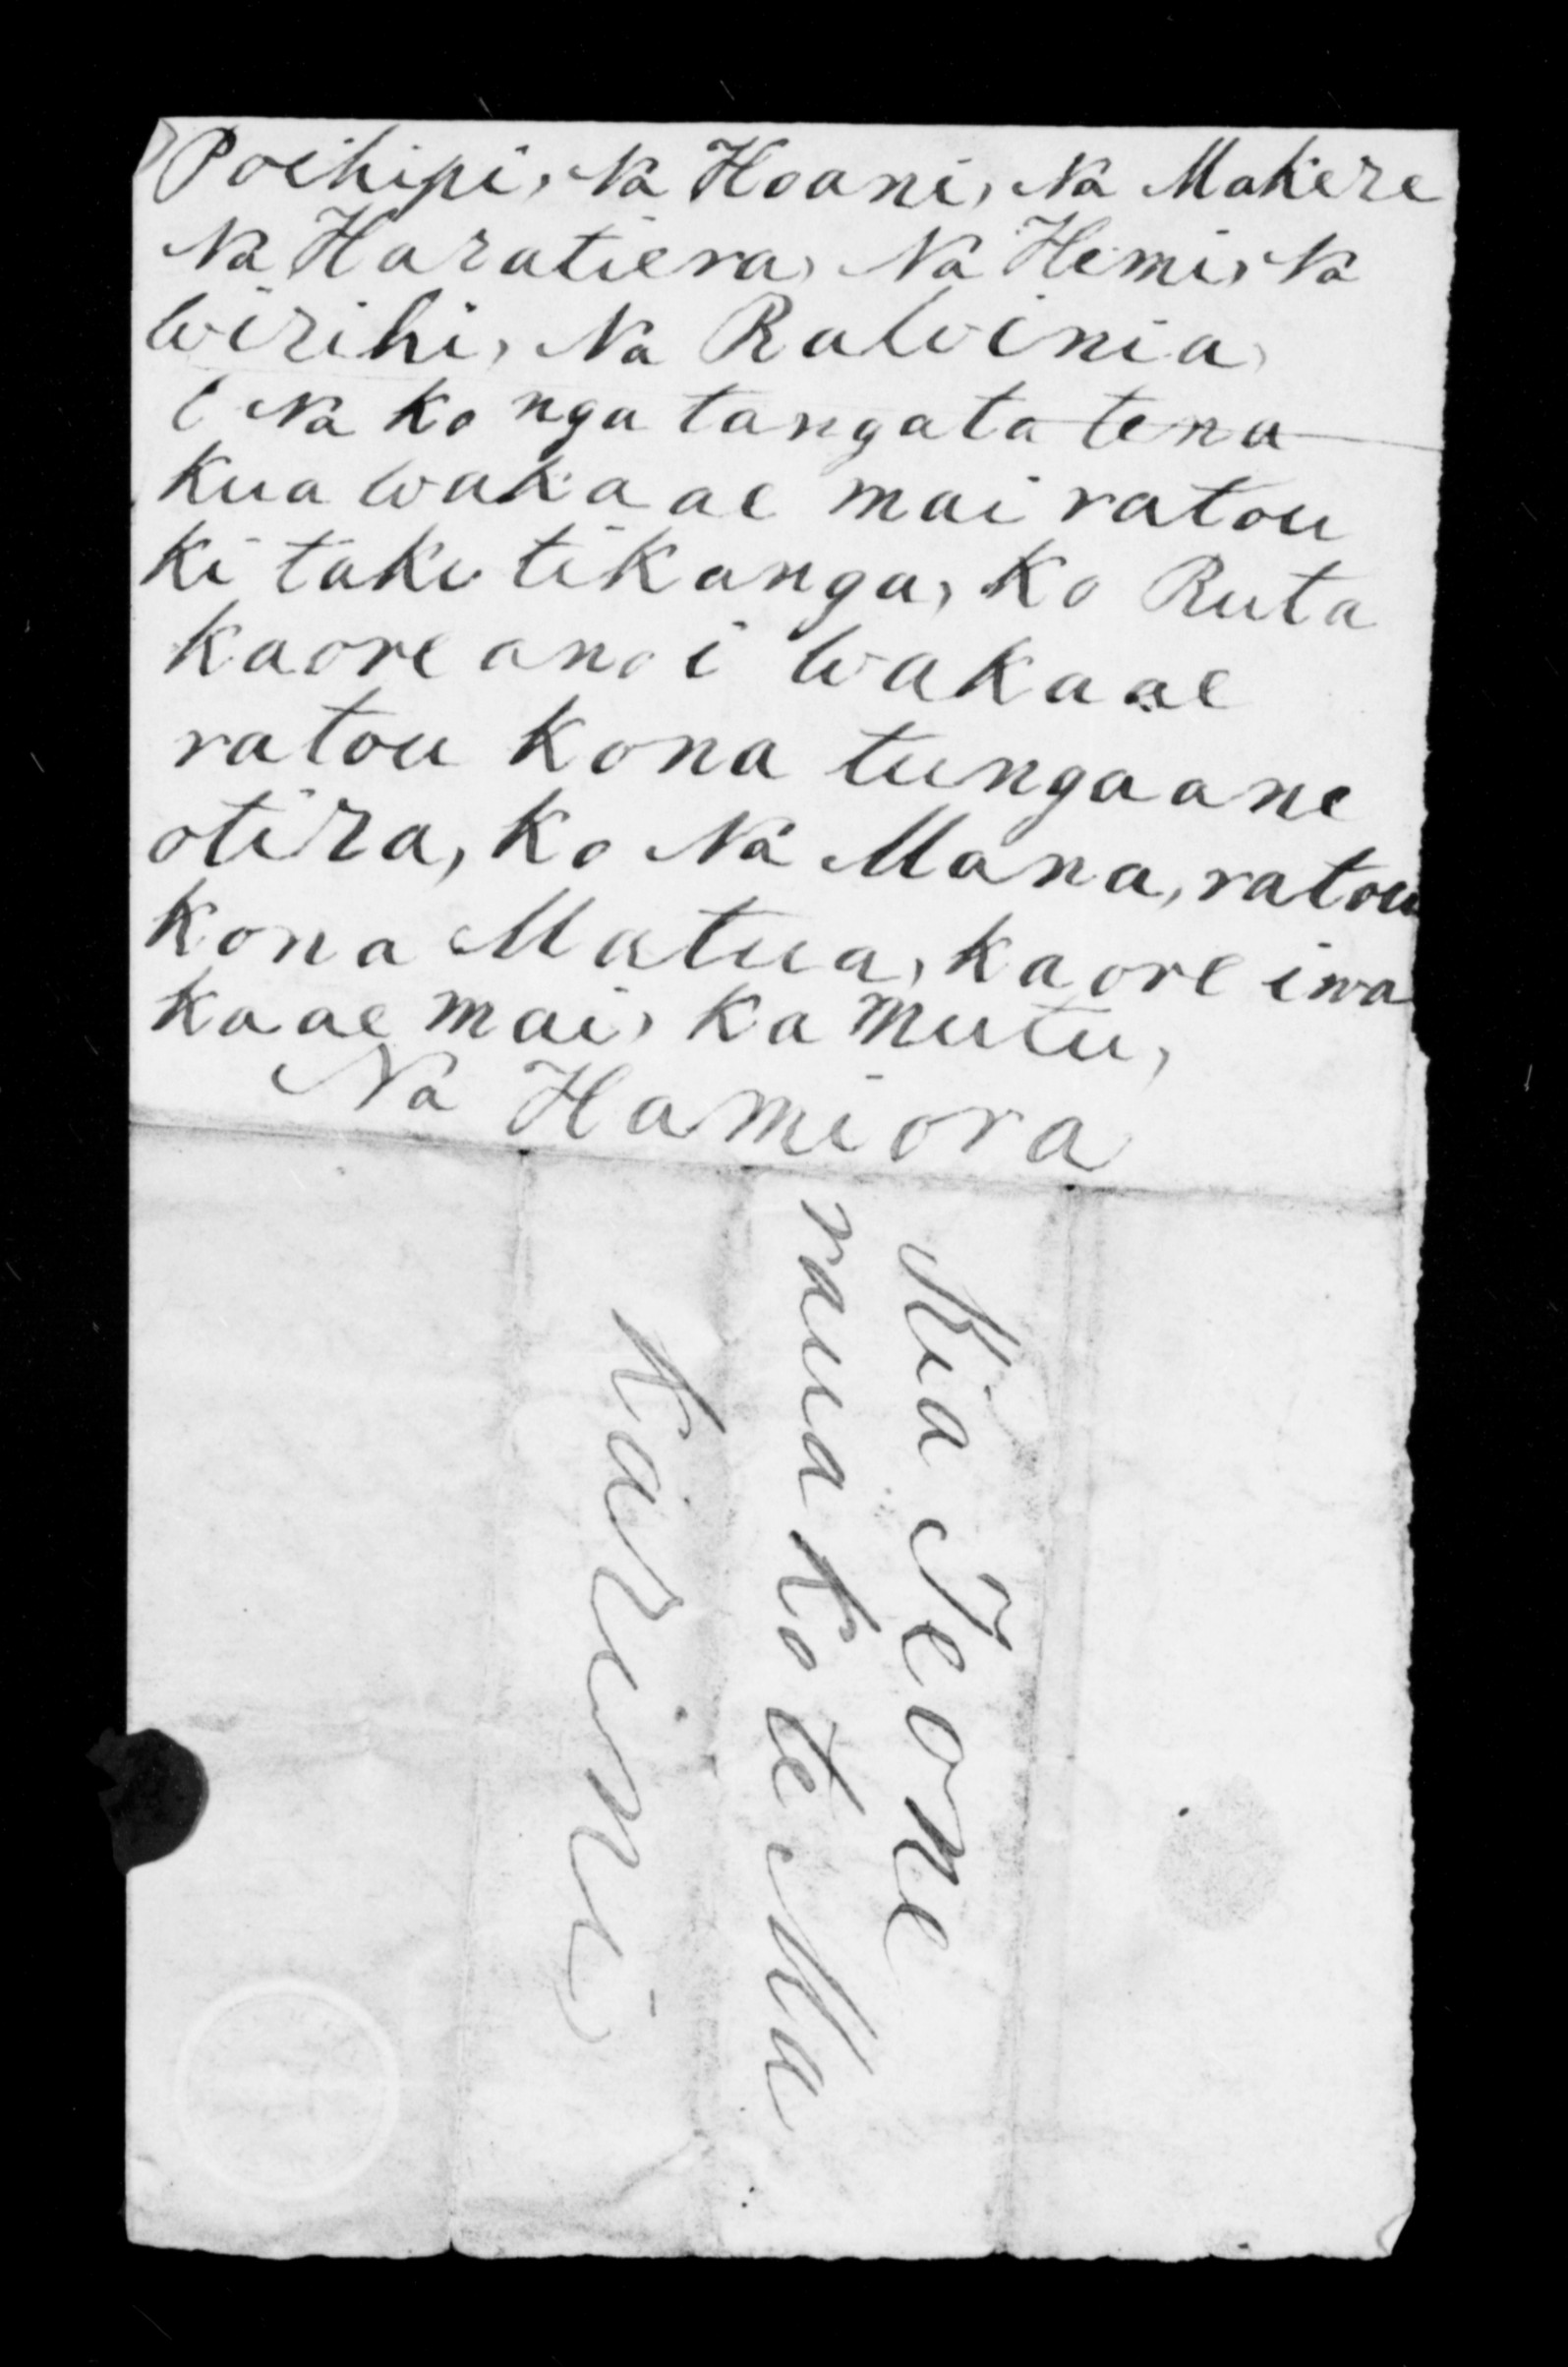 Poihipi, Na Hoani, Na Makere
Na Haratiera, Na Hemi, Na
Wirihi, Na Rawinia,
E Na ko nga tangata tena
kua wakaae mai ratou
ki taku tikanga, ko Ruta
kaore ano i wakaae
ratou kona tungaane
otira, ko Na Mana, ratou
kona Matua, kaore iwa
kaae mai, ka mutu,
Na Hamiora
Kia Teone
raua ko te Ma
karini